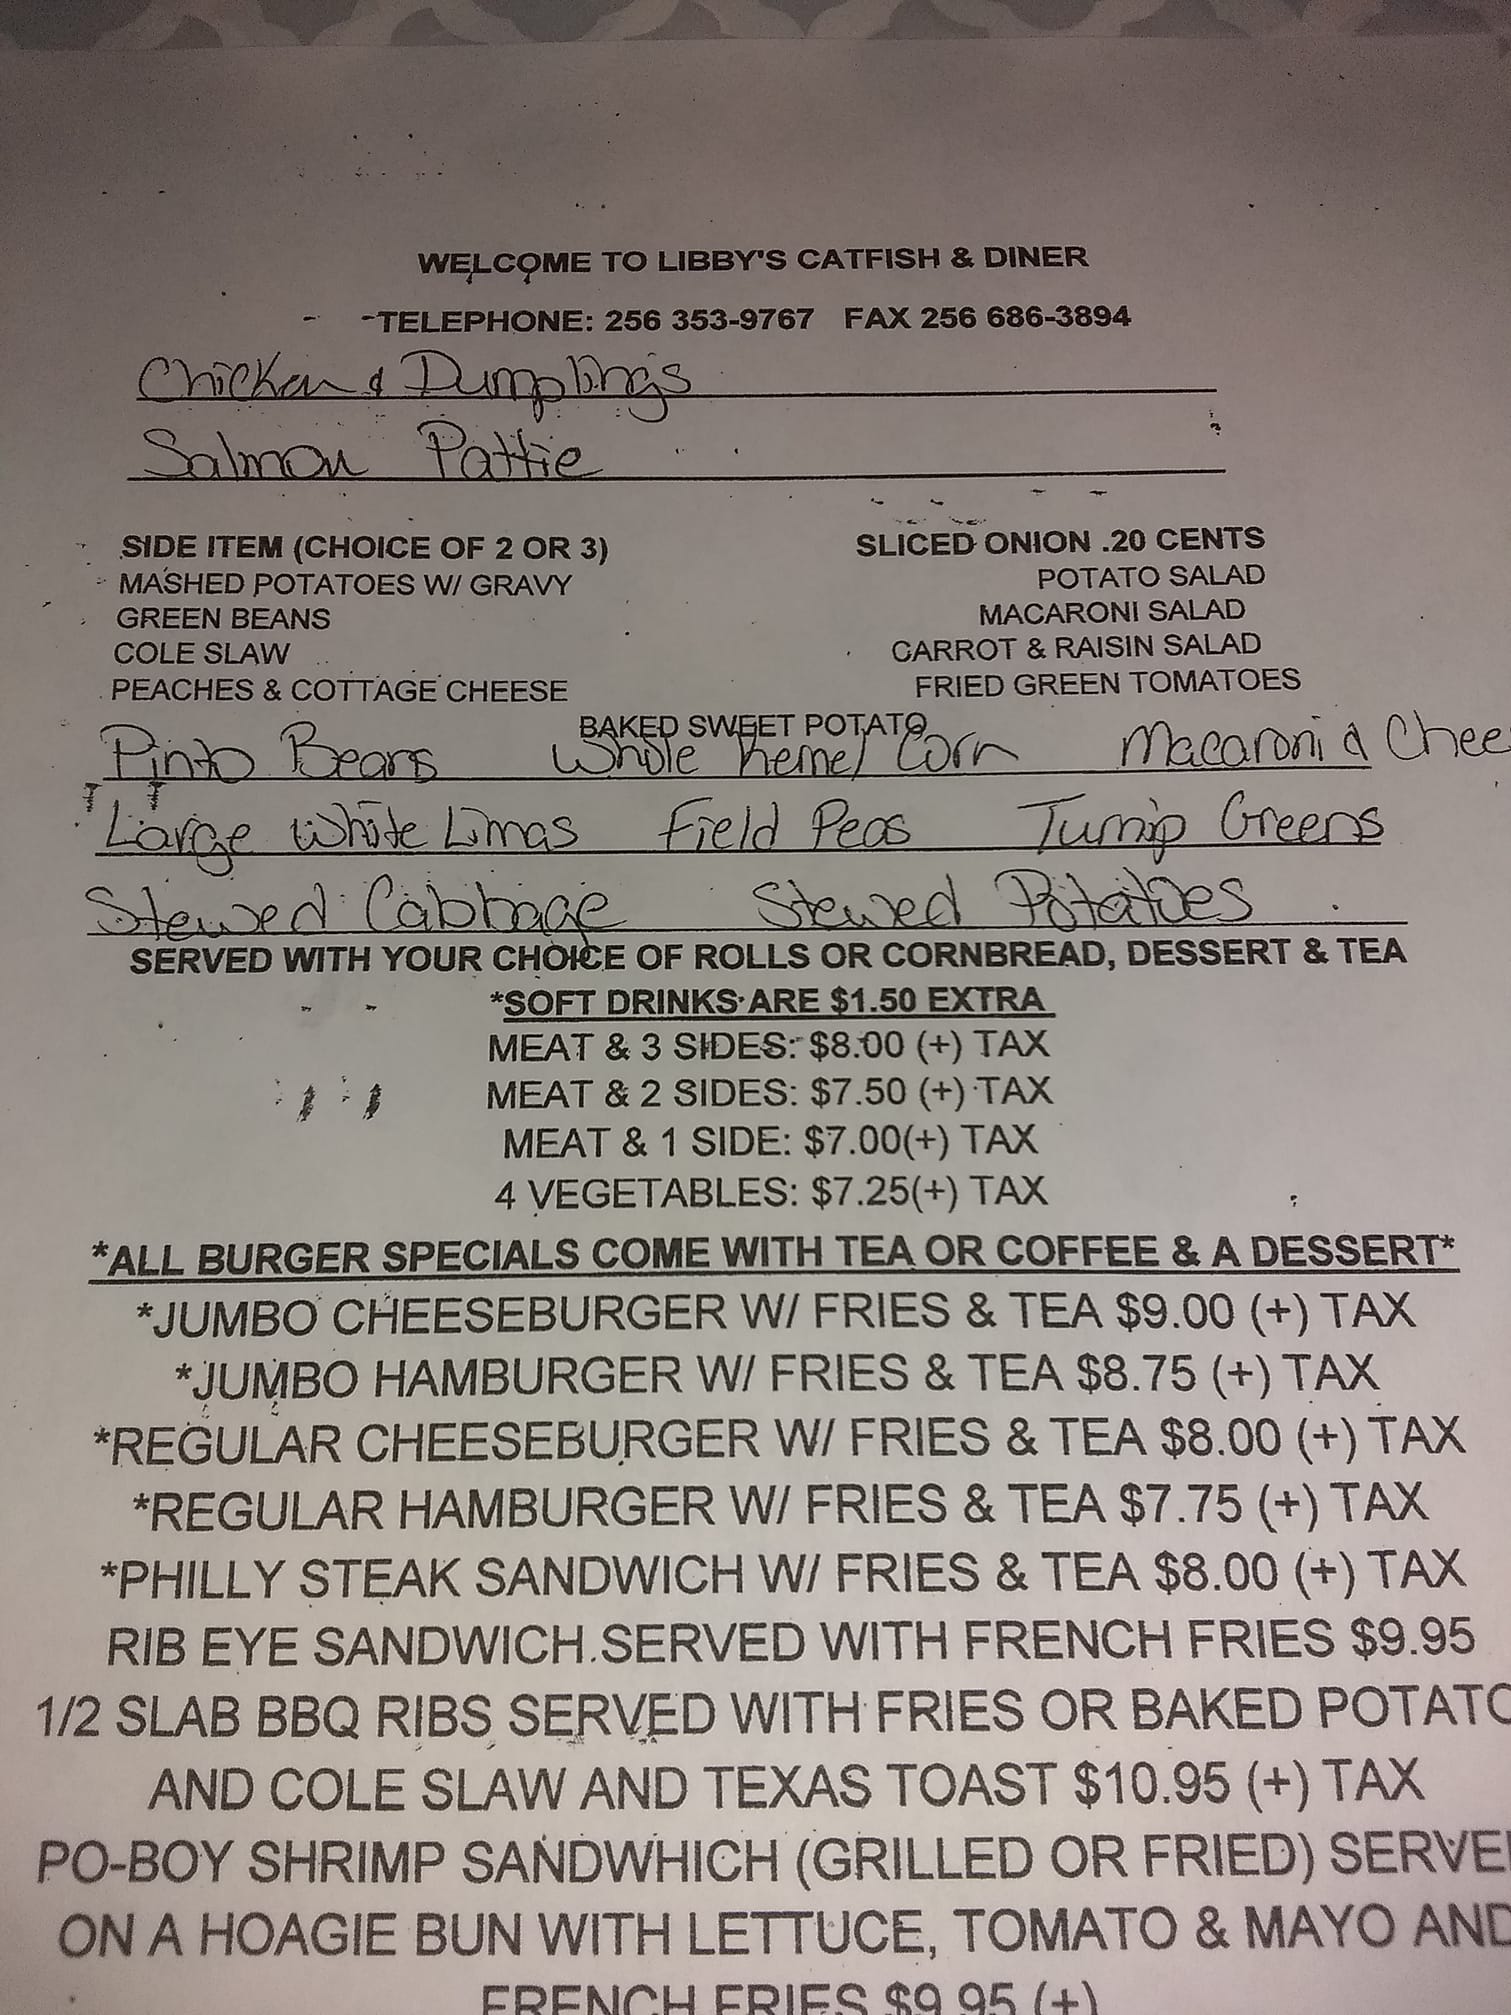 WELCOME TO LIBBY'S CATFISH & DINER
TELEPHONE: 256 353-9767 FAX 256 686-3894
Chicken & Dumplings
Salmon Pattie
SIDE ITEM (CHOICE OF 2 OR 3) SLICED ONION .20 CENTS
MASHED POTATOES W/ GRAVY POTATO SALAD
GREEN BEANS MACARONI SALAD
COLE SLAW CARROT & RAISIN SALAD
PEACHES & COTTAGE CHEESE FRIED GREEN TOMATOES
BAKED SWEET POTATO
Pinto Beans Whole Kernel Corn Macaroni & Chee
Large White Limas Field Peas Turnip Greens
Stewed Cabbage Stewed Potatoes
SERVED WITH YOUR CHOICE OF ROLLS OR CORNBREAD, DESSERT & TEA
*SOFT DRINKS ARE $1.50 EXTRA
MEAT & 3 SIDES: $8.00 (+) TAX
MEAT & 2 SIDES: $7.50 (+) TAX
MEAT & 1 SIDE: $7.00(+) TAX
4 VEGETABLES: $7.25(+) TAX
*ALL BURGER SPECIALS COME WITH TEA OR COFFEE & A DESSERT*
*JUMBO CHEESEBURGER W/ FRIES & TEA $9.00 (+) TAX
*JUMBO HAMBURGER W/ FRIES & TEA $8.75 (+) TAX
*REGULAR CHEESEBURGER W/ FRIES & TEA $8.00 (+) TAX
*REGULAR HAMBURGER W/ FRIES & TEA $7.75 (+) TAX
*PHILLY STEAK SANDWICH W/ FRIES & TEA $8.00 (+) TAX
RIB EYE SANDWICH SERVED WITH FRENCH FRIES $9.95
1/2 SLAB BBQ RIBS SERVED WITH FRIES OR BAKED POTATO
AND COLE SLAW AND TEXAS TOAST $10.95 (+) TAX
PO-BOY SHRIMP SANDWHICH (GRILLED OR FRIED) SERVE
ON A HOAGIE BUN WITH LETTUCE, TOMATO & MAYO AND
FRENCH FRIES $9.95 (+)